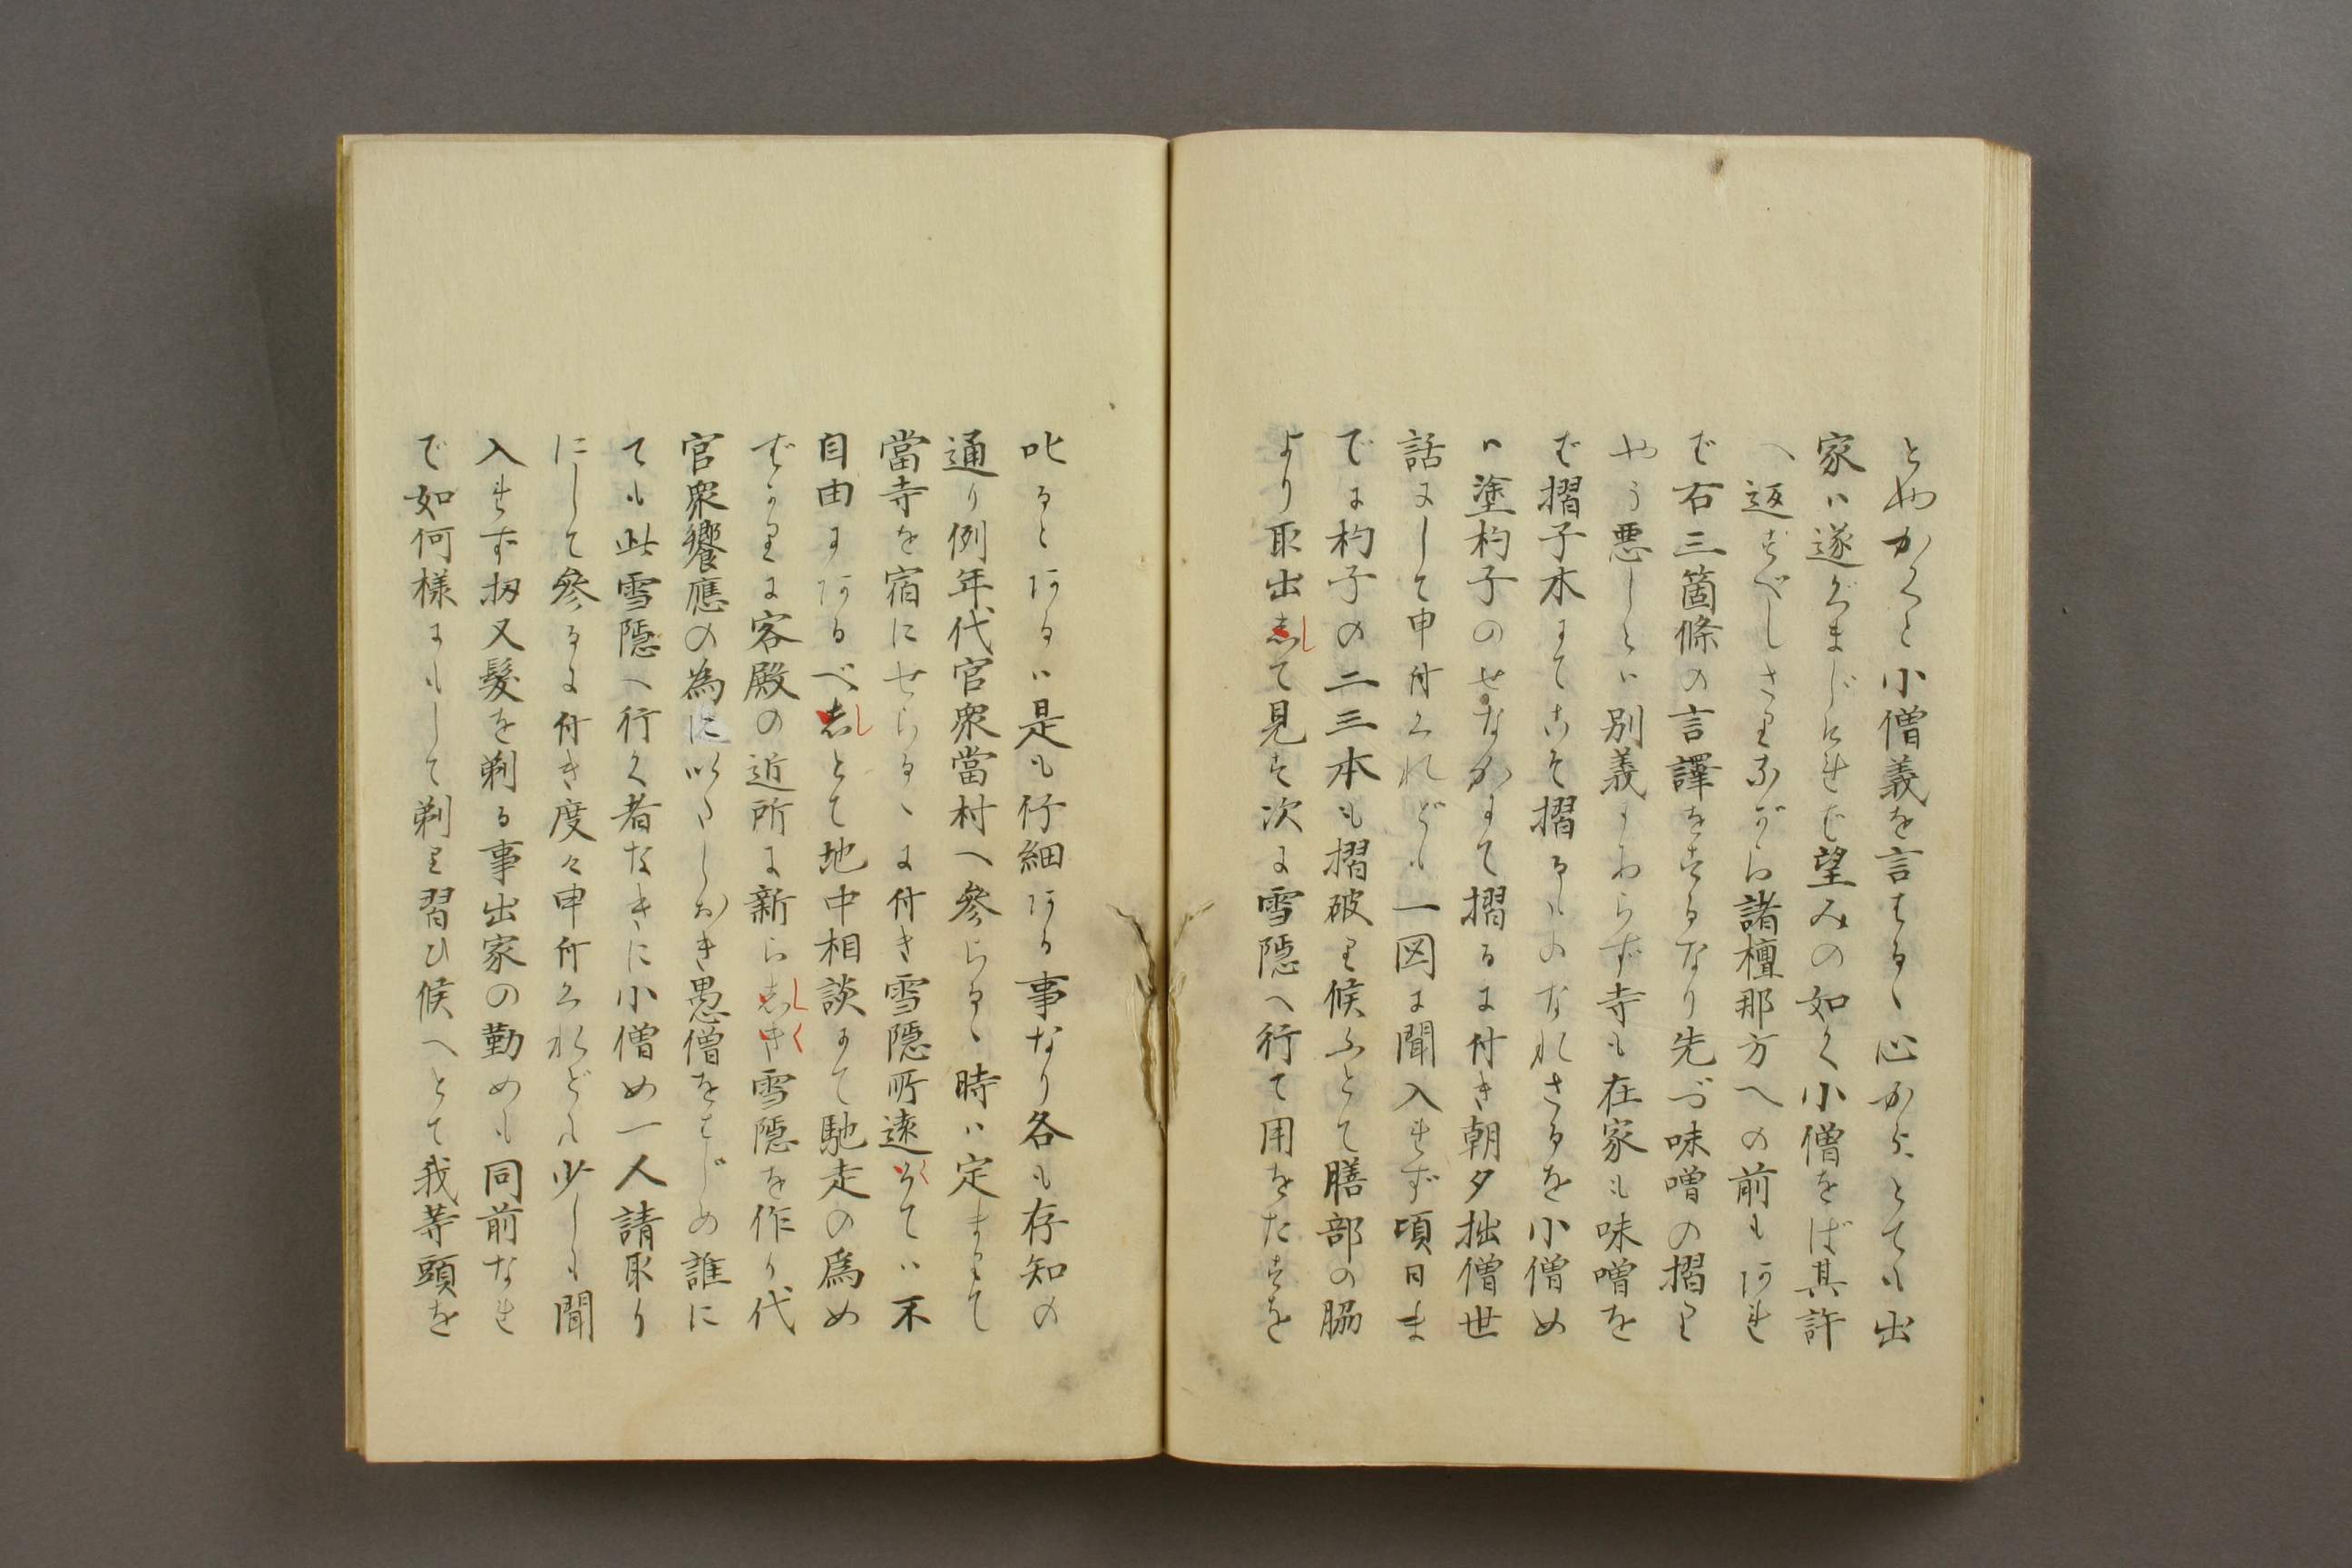 とやかくと小僧義を言はるゝ心からとても出
家ハ遂ぐまじければ望みの如く小僧をば其許
へ返すべしさりながら諸檀那方への前もあれ
ば右三箇條の言譯をするなり先づ味噌の摺り
やう悪しとハ別義にあらず寺も在家も味噌を
ば摺子木にてこそ摺るものなれさるを小僧め
ハ塗杓子のせなかにて摺るに付き朝夕拙僧世
話にして申付くれども一図に聞入れず頃日ま
でに杓子の二三本も摺破り候ふとて膳部の脇
より取出志して見せ次に雪隠へ行て用をたすを
叱るとあるハ是も仔細ある事なり各も存知の
通り例年代官衆當村へ參らるゝ時ハ定まりて
當寺を宿にせらるゝに付き雪隠所遠くてハ不
自由にあるべ志しとて地中相談にて馳走の為め
ばかりに客殿の近所に新ら志しきく雪隠を作り代
官衆饗應の為にいたしおき愚僧をはじめ誰に
ても此雪隠へ行く者なきに小僧め一人請取り
にして參るに付き度々申付くれども少しも聞
入れず扨又髮を剃る事出家の勤めも同前なれ
で如何様にもして剃り習ひ候へとて我等頭を